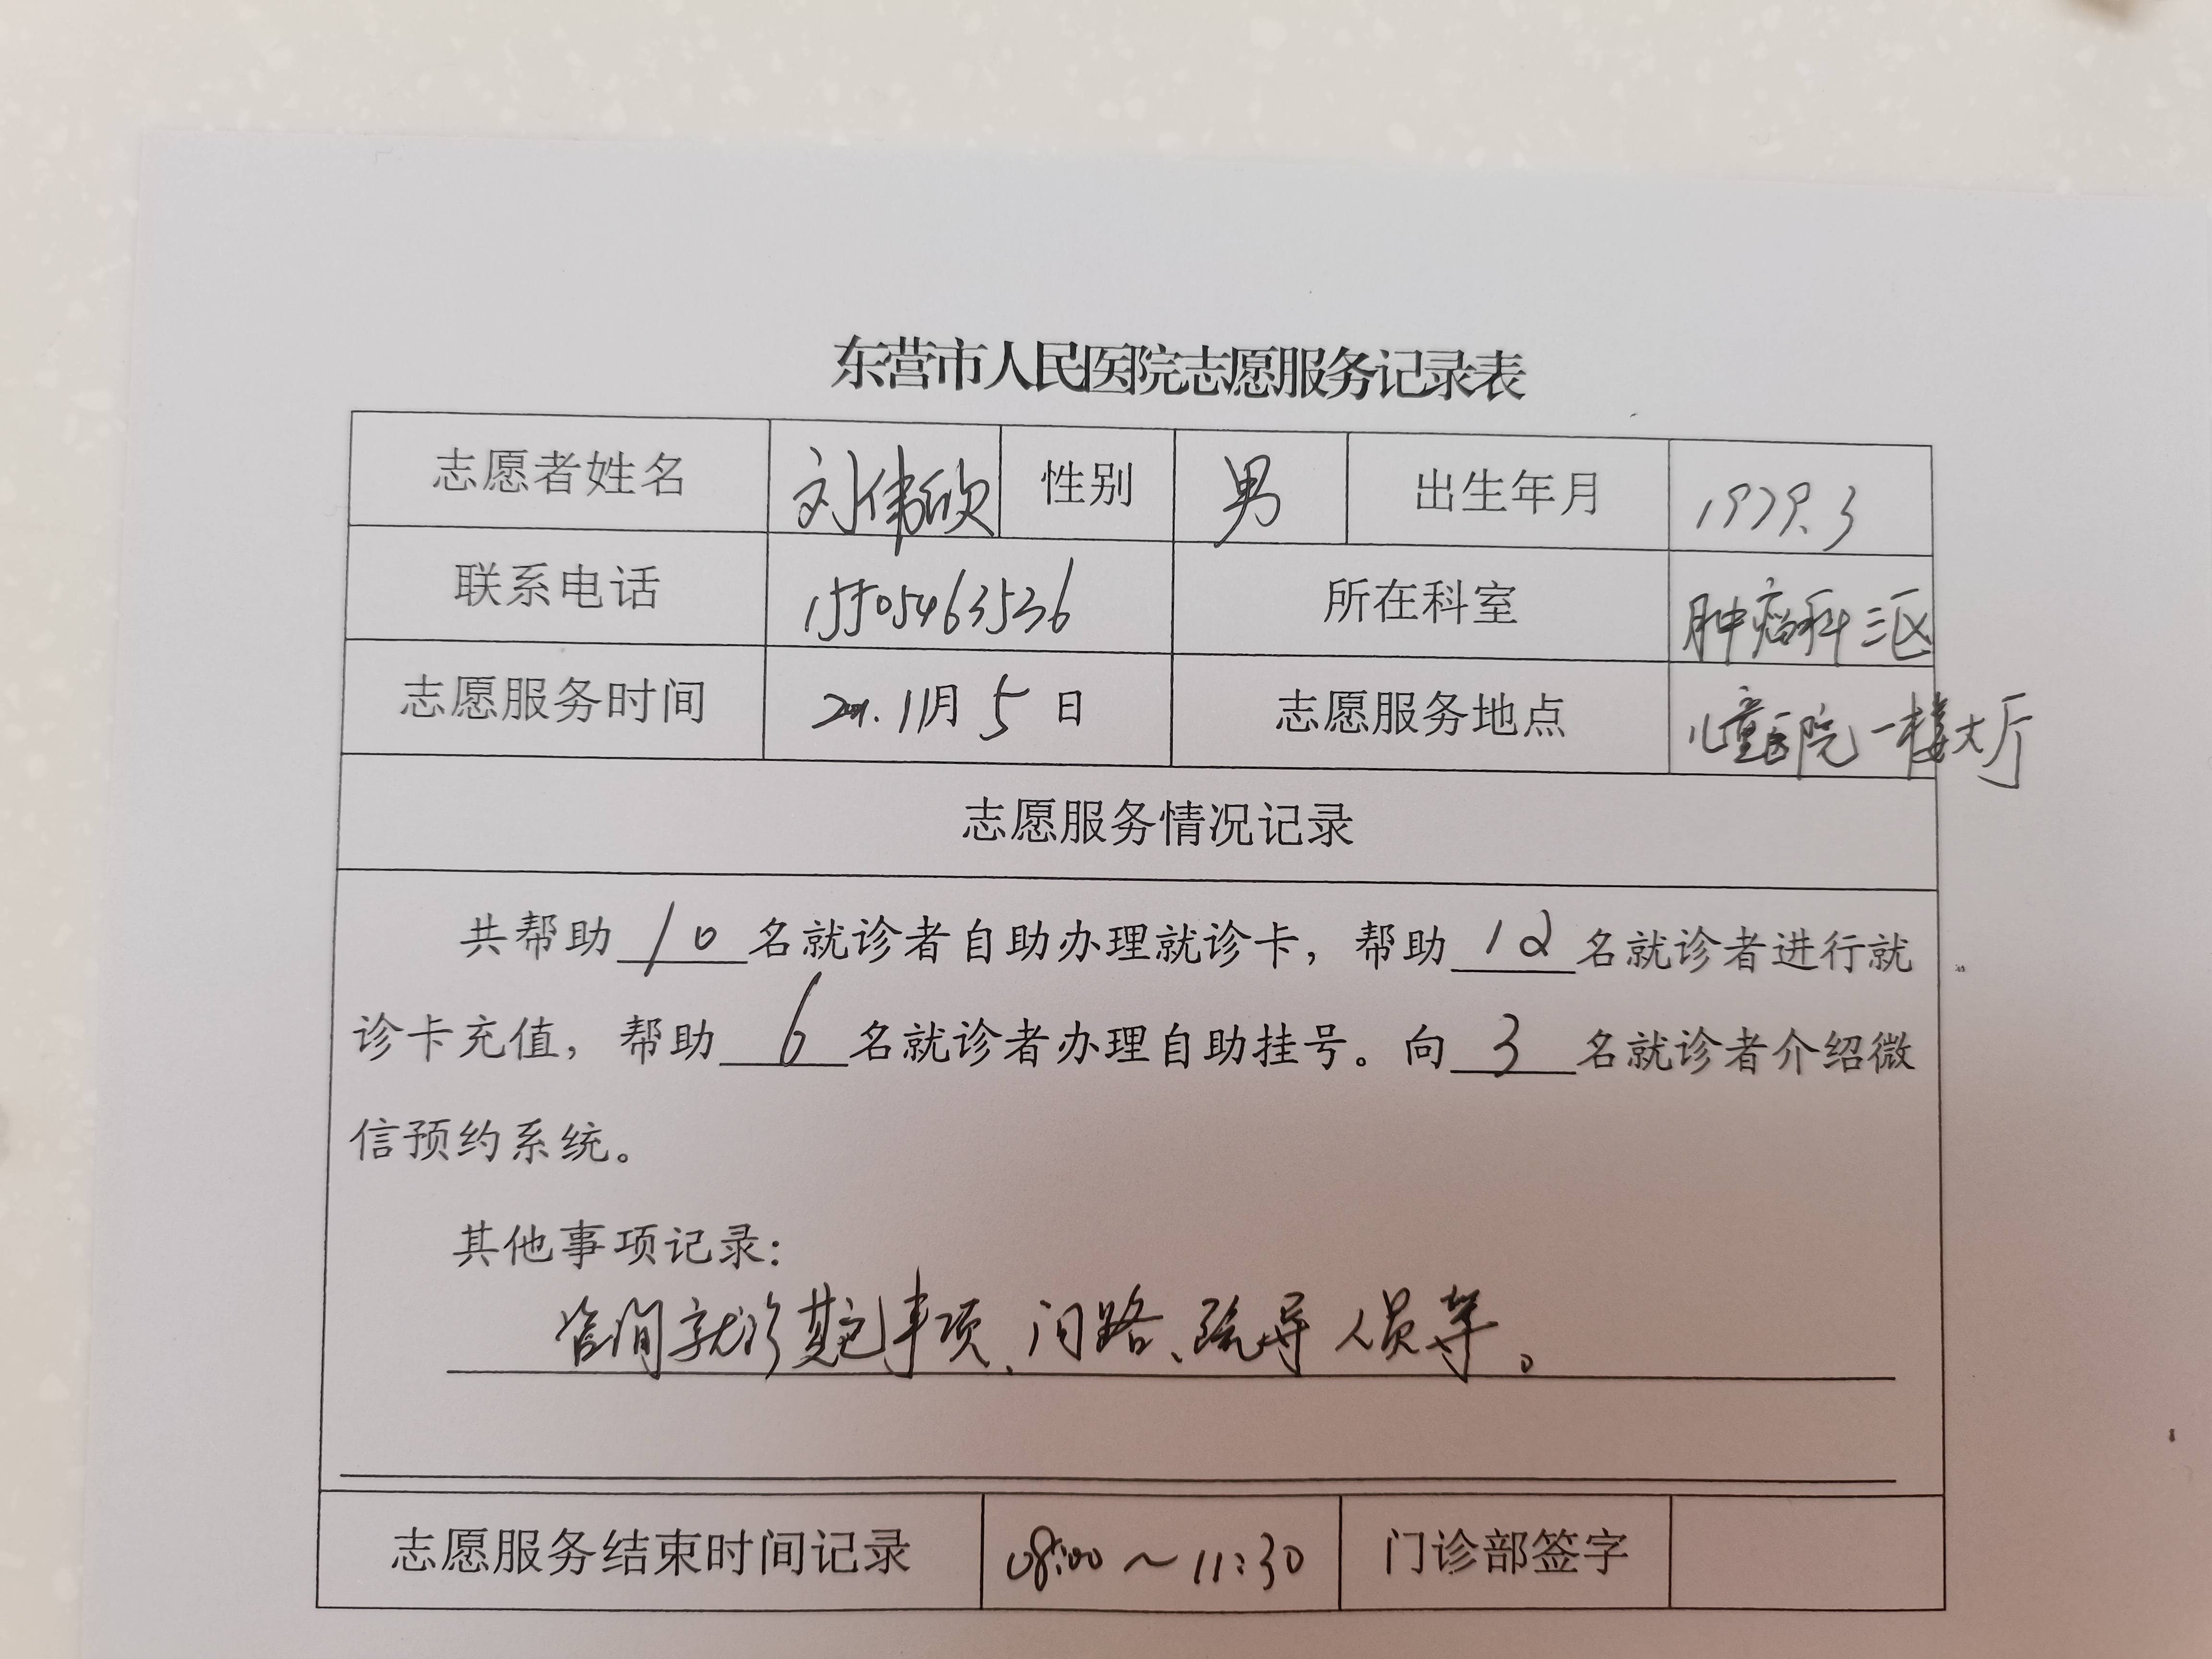 东营市人民医院志愿服务记录表
志愿者姓名 刘伟欣 性别 男 出生年月 1979.3
联系电话 15505463536 所在科室 肿瘤科三区
志愿服务时间 11月5日 志愿服务地点 儿童医院一楼大厅
志愿服务情况记录
共帮助10名就诊者自助办理就诊卡，帮助12名就诊者进行就
诊卡充值，帮助6名就诊者办理自助挂号。向3名就诊者介绍微
信预约系统。
其他事项记录：
就诊其它事项、问路、疏导人员等。
志愿服务结束时间记录 08:00～11:30 门诊部签字